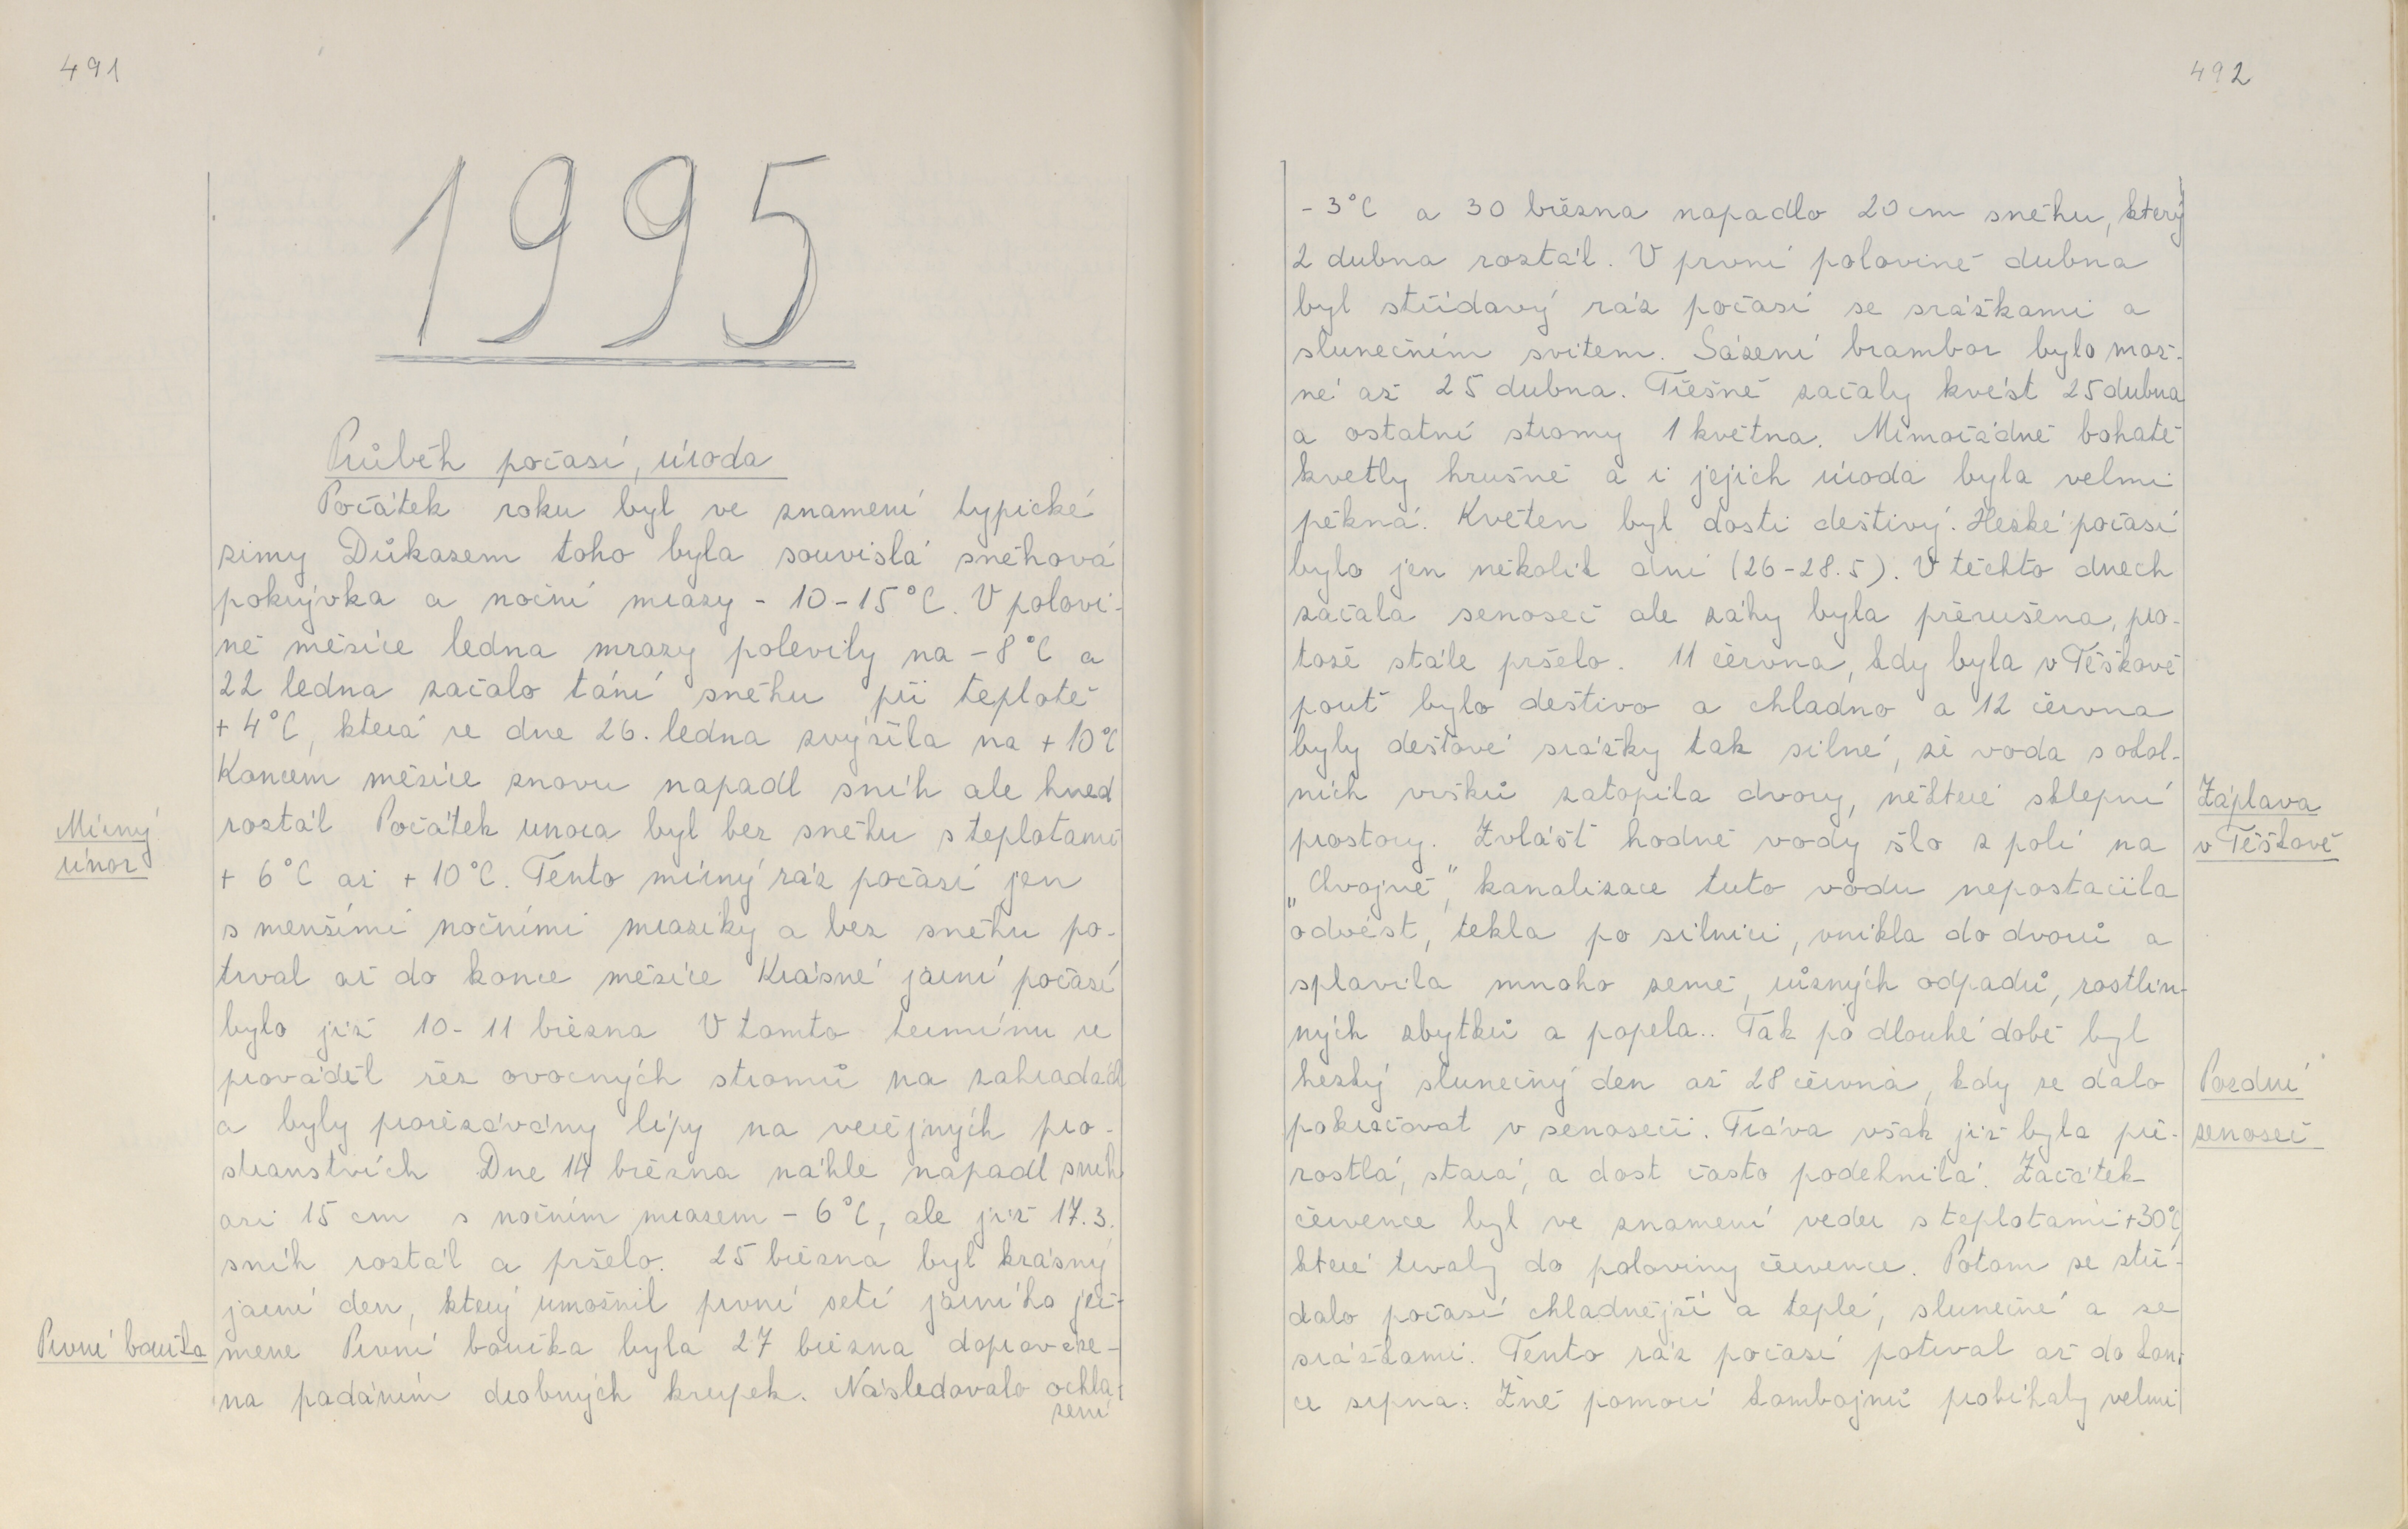 491
1995
Průběh počasí, úroda
Počátek roku byl ve znamení typické
zimy Důkazem toho byla souvislá sněhová
pokrývka a noční mrazy - 10-15°C. V polovi-
ně měsíce ledna mrazy polevily na -8°C a
22 ledna začalo tání sněhu při teplotě
+ 4°C, která se dne 26. ledna zvýšila na +10°C
Koncem měsíce znovu napadl sníh ale hned
roztál Počátek února byl bez sněhu s teplotami
Mírný
únor
+ 6°C až + 10°C. Tento mírný ráz počasí jen
s menšími nočními mrazíky a bez sněhu po-
trval až do konce měsíce Krásné jarní počasí
bylo již 10-11 března V tomto termínu se
prováděl řez ovocných stromů na zahradách
a byly prořezávány lípy na veřejných pro-
stranstvích Dne 14 března náhle napadl sníh
asi 15 cm s nočním mrazem - 6°C, ale již 17.3.
sníh roztál a pršelo. 25 března byl krásný
jarní den, který umožnil první setí jarního ječ-
První bouřka
mene První bouřka byla 27 března doprováze-
na padáním drobných krupek. Následovalo ochla-
zení
492
- 3°C a 30 března napadlo 20 cm sněhu, který
2 dubna roztál. V první polovině dubna
byl střídavý ráz počasí se srážkami a
slunečním svitem. Sázení brambor bylo mož-
né až 25 dubna. Třešně začaly kvést 25 dubna
a ostatní stromy 1 května. Mimořádně bohatě
kvetly hrušně a i jejich úroda byla velmi
pěkná. Květen byl dosti deštivý. Hezké počasí
bylo jen několik dní (26-28.5). V těchto dnech
začala senoseč ale záhy byla přerušena, pro-
tože stále pršelo. 11 června, kdy byla v Těškově
pouť bylo deštivo a chladno a 12 června
byly dešťové srážky tak silné, že voda s okol-
ních vršků zatopila dvory, některé sklepní
Záplava
v Těškově
prostory. Zvlášť hodně vody šlo z polí na
„Chvojně", kanalizace tuto vodu nepostačila
odvést, tekla po silnici, vnikla do dvorů a
splavila mnoho země, různých odpadů, rostlin-
ných zbytků a popela.. Tak po dlouhé době byl
hezký slunečný den až 28 června, kdy se dalo
Pozdní
senoseč
pokračovat v senoseči. Tráva však již byla pře-
rostlá, stará, a dost často podehnilá. Začátek
července byl ve znamení veder s teplotami +30°C,
které trvaly do poloviny července. Potom se stří-
dalo počasí chladnější a teplé, slunečné a se
srážkami. Tento ráz počasí potrval až do kon-
ce srpna. Žně pomocí kombajnů probíhaly velmi